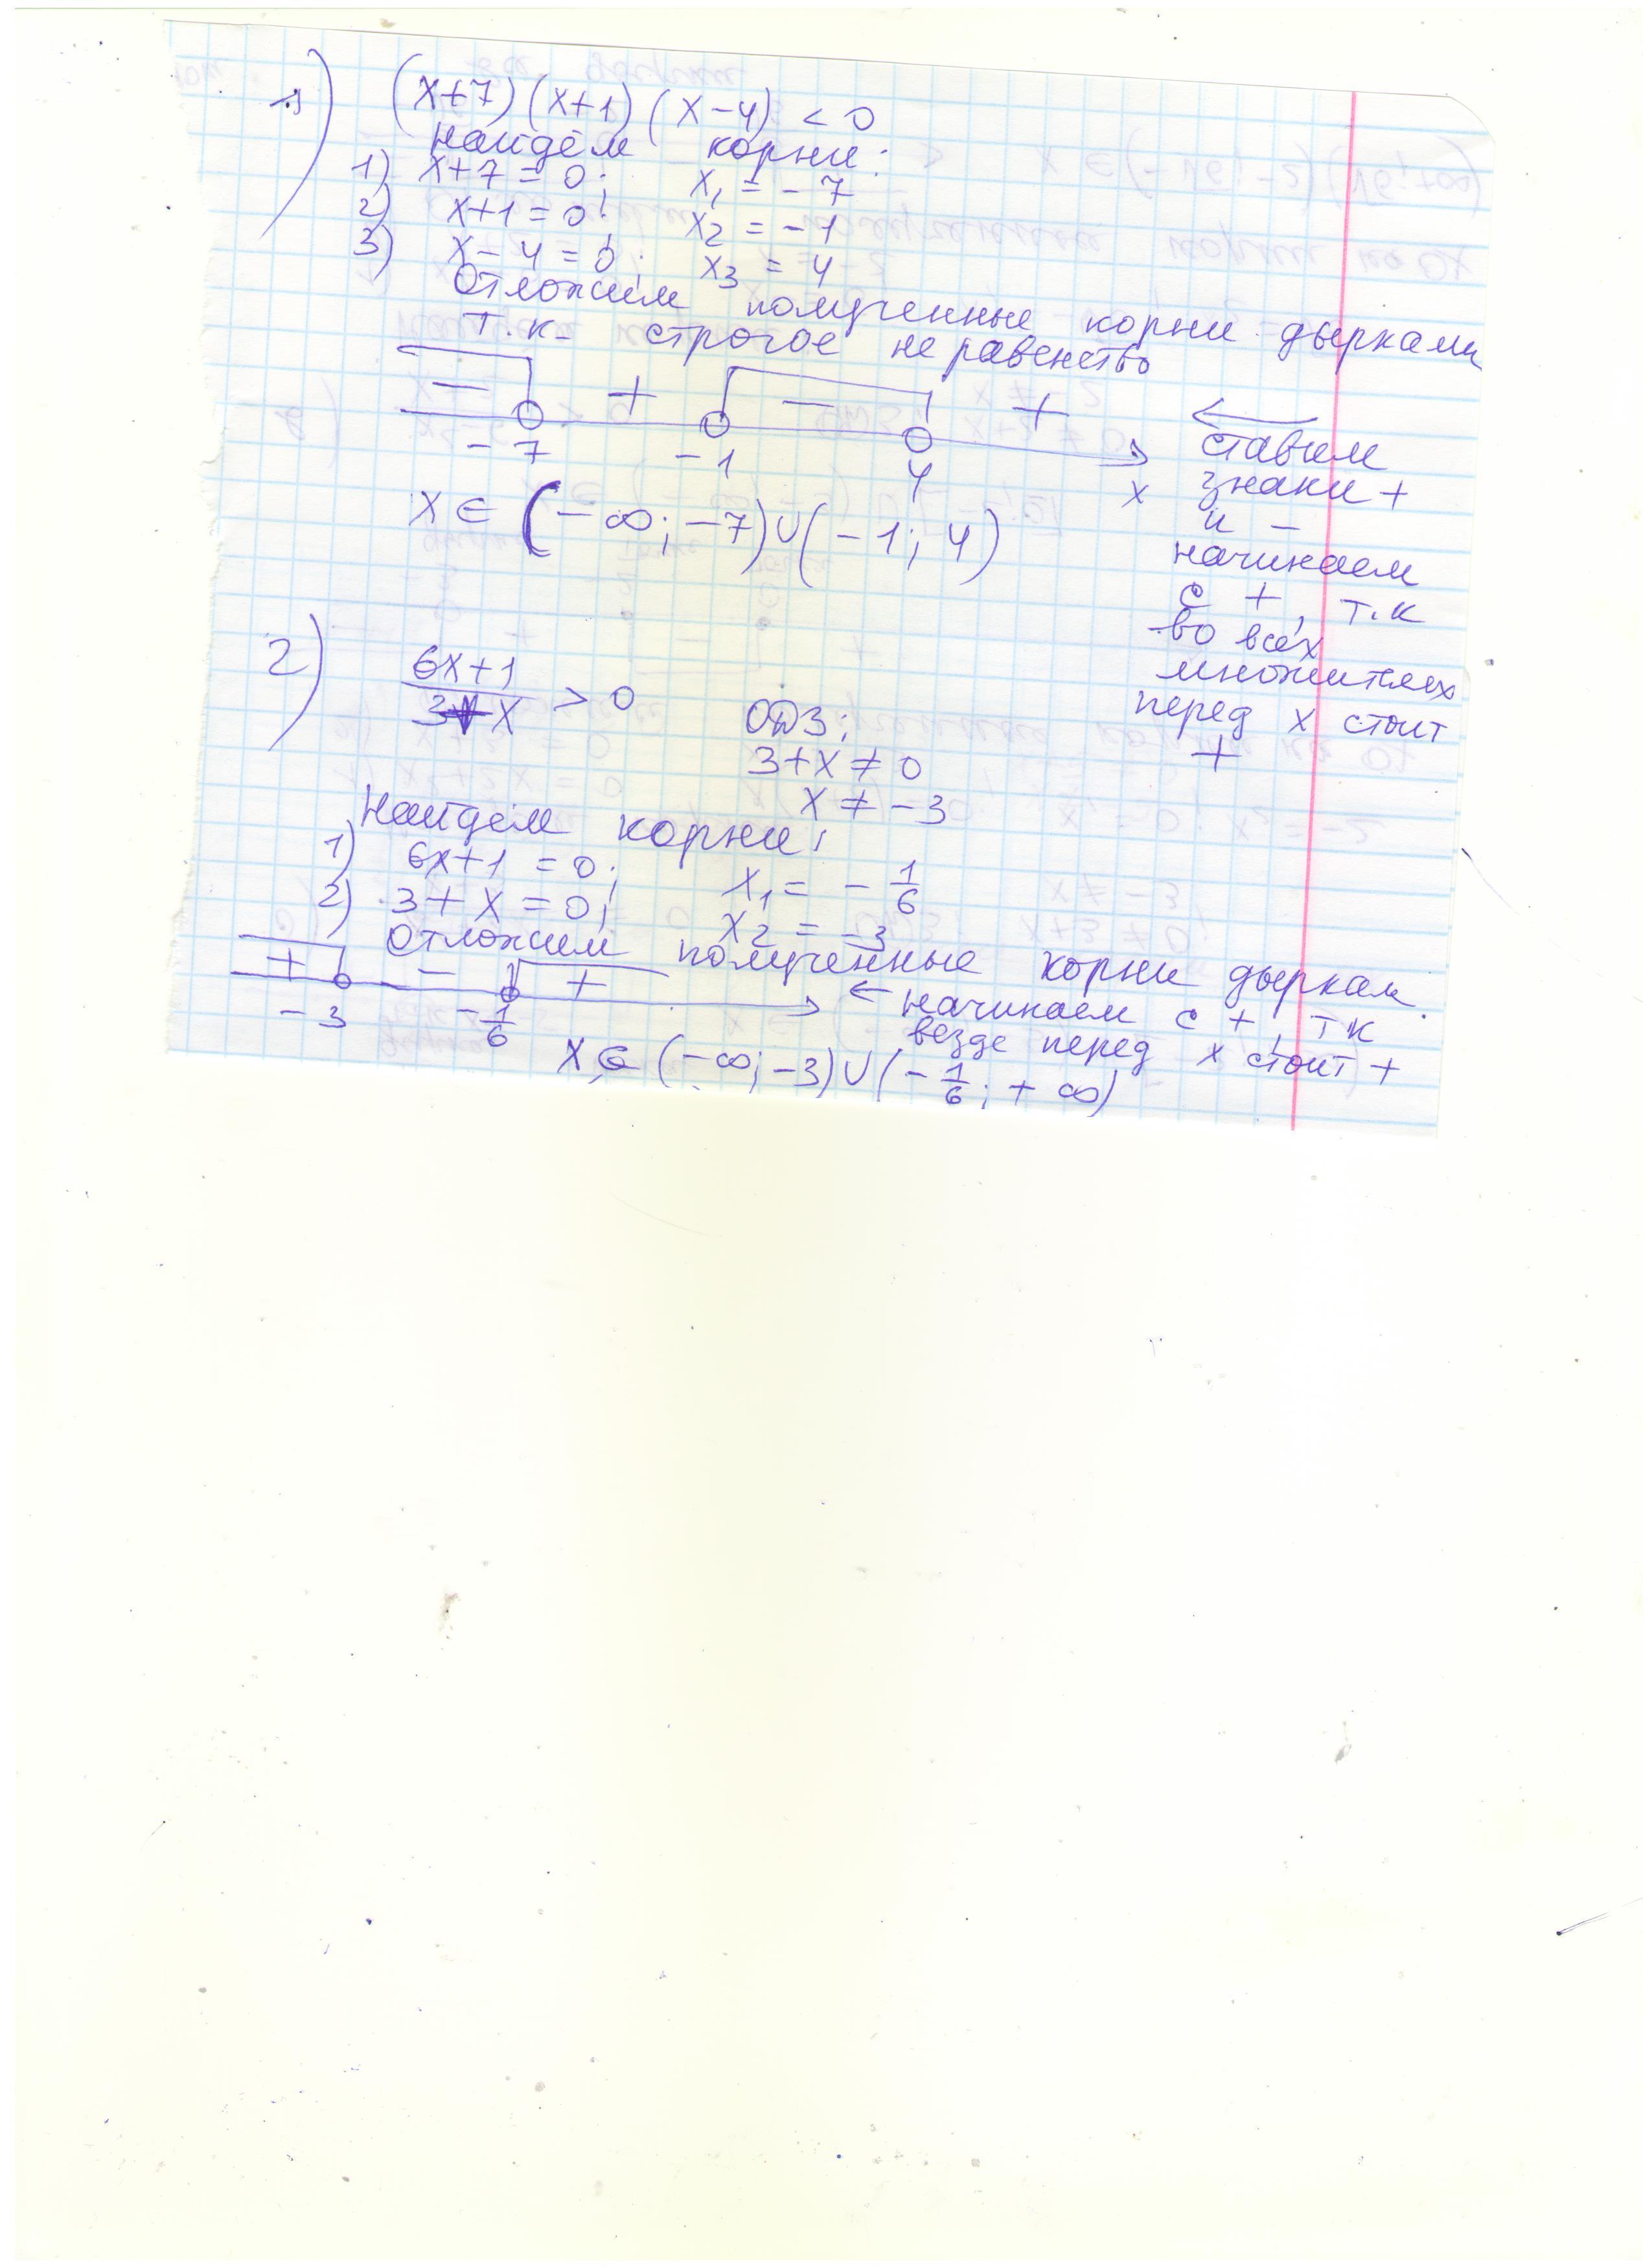 1) (x+7)(x+1)(x-4) < 0
найдём корни:
1) x+7=0; x₁ = -7
2) x+1=0; x₂ = -1
3) x-4=0; x₃ = 4
Отложим полученные корни дырками
т.к. строгое неравенство
- + - +
-7 -1 4 x
← ставим
знаки +
и -
начинаем
с +, т.к
во всех
множителях
перед x стоит
+
x ∈ (-∞; -7)∪(-1; 4)
2) (6x+1)/(3+x) > 0
ОДЗ:
3+x ≠ 0
x ≠ -3
Найдём корни:
1) 6x+1 = 0; x₁ = -1/6
2) 3+x=0; x₂ = -3
Отложим полученные корни дыркам
+ - +
-3 -1/6
← начинаем с +, тк
везде перед x стоит +
x ∈ (-∞; -3)∪(-1/6; +∞)